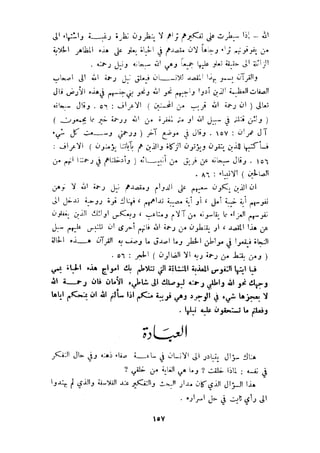 الله — إذا سيطرت على تفكيرهم تراهم ينظرون نظرة رغبة واشتهاء الى
يفوقونهم ثراء وجاهاً ولأن مقصدهم في الحياة يعلو على هذه المظاهر الخلابة
الزائلة الى حقيقة تعلو عليها جميعاً وهي الله سبحانه ونيل رحمته .
والقرآن يسمو بهذا المقصد للانسان فيعلق نيل رحمة الله الى أصحاب
الصفات العظيمة الذين أدوا واجبهم نحو الله ونحو بني جنسهم في هذه الأرض قال
تعالى ( ان رحمة الله قريب من المحسنين ) الاعراف : ٥٦ . وقال سبحانه
( ولئن قتلتم في سبيل الله أو متم لمغفرة من الله ورحمة خير مما يجمعون )
آل عمران : ١٥٧ . وقال في موضع آخر ( ورحمتي وسعت كل شيء
فسأكتبها للذين يتقون ويؤتون الزكاة والذين هم بآياتنا يؤمنون ) الاعراف :
١٥٦ . وقال سبحانه عن فريق من أنبيائه ( وأدخلناهم في رحمتنا إنهم من
الصالحين ) الأنبياء : ٨٦ .
ان الذين يكون سعيهم على الدوام ومقصدهم نيل رحمة الله لا توهن
نفوسهم أية خيبة أمل ، أو أية مصيبة تدهمهم ، فهناك قوة روحية تدخل الى
نفوسهم العزاء بما يقاسونه من آلام ومتاعب ، وبعكس اولئك الذين يغفلون
عن هذا المقصد ، أو يقنطون من رحمة الله فانهم أحرى أن تلتبس عليهم سبل
النجاة فيقعوا في مواطن الخطر وما اصدق ما وصف به القرآن هذه الحالة
( ومن يقنط من رحمة ربه إلا الضالون ) الحجر : ٥٦ .
فيا أيتها النفوس المعذبة الشقية التي تتلاطم بك امواج هذه الحياة يمي
وجهك نحو الله واطلبي رحمته ليوصلك الى شاطىء الأمان فان رحمة الله
لا يعجزها شيء في الوجود وهي قريبة منكم اذا سألتم الله ان يمنحكم اياها
وفعلتم ما تستحقون عليه نيلها .
العبادة
هناك سؤال يتبادر الى الانسان في ساعة صفاء ذهنه وفي حال التفكر
في نفسه : لماذا خلقت ؟ وما هي الغاية من خلقي ؟
هذا السؤال الذي كان مدار البحث والتفكير عند الفلاسفة والذي لم يهتدوا
الى رأي ثابت في حل أسراره .
١٥٧